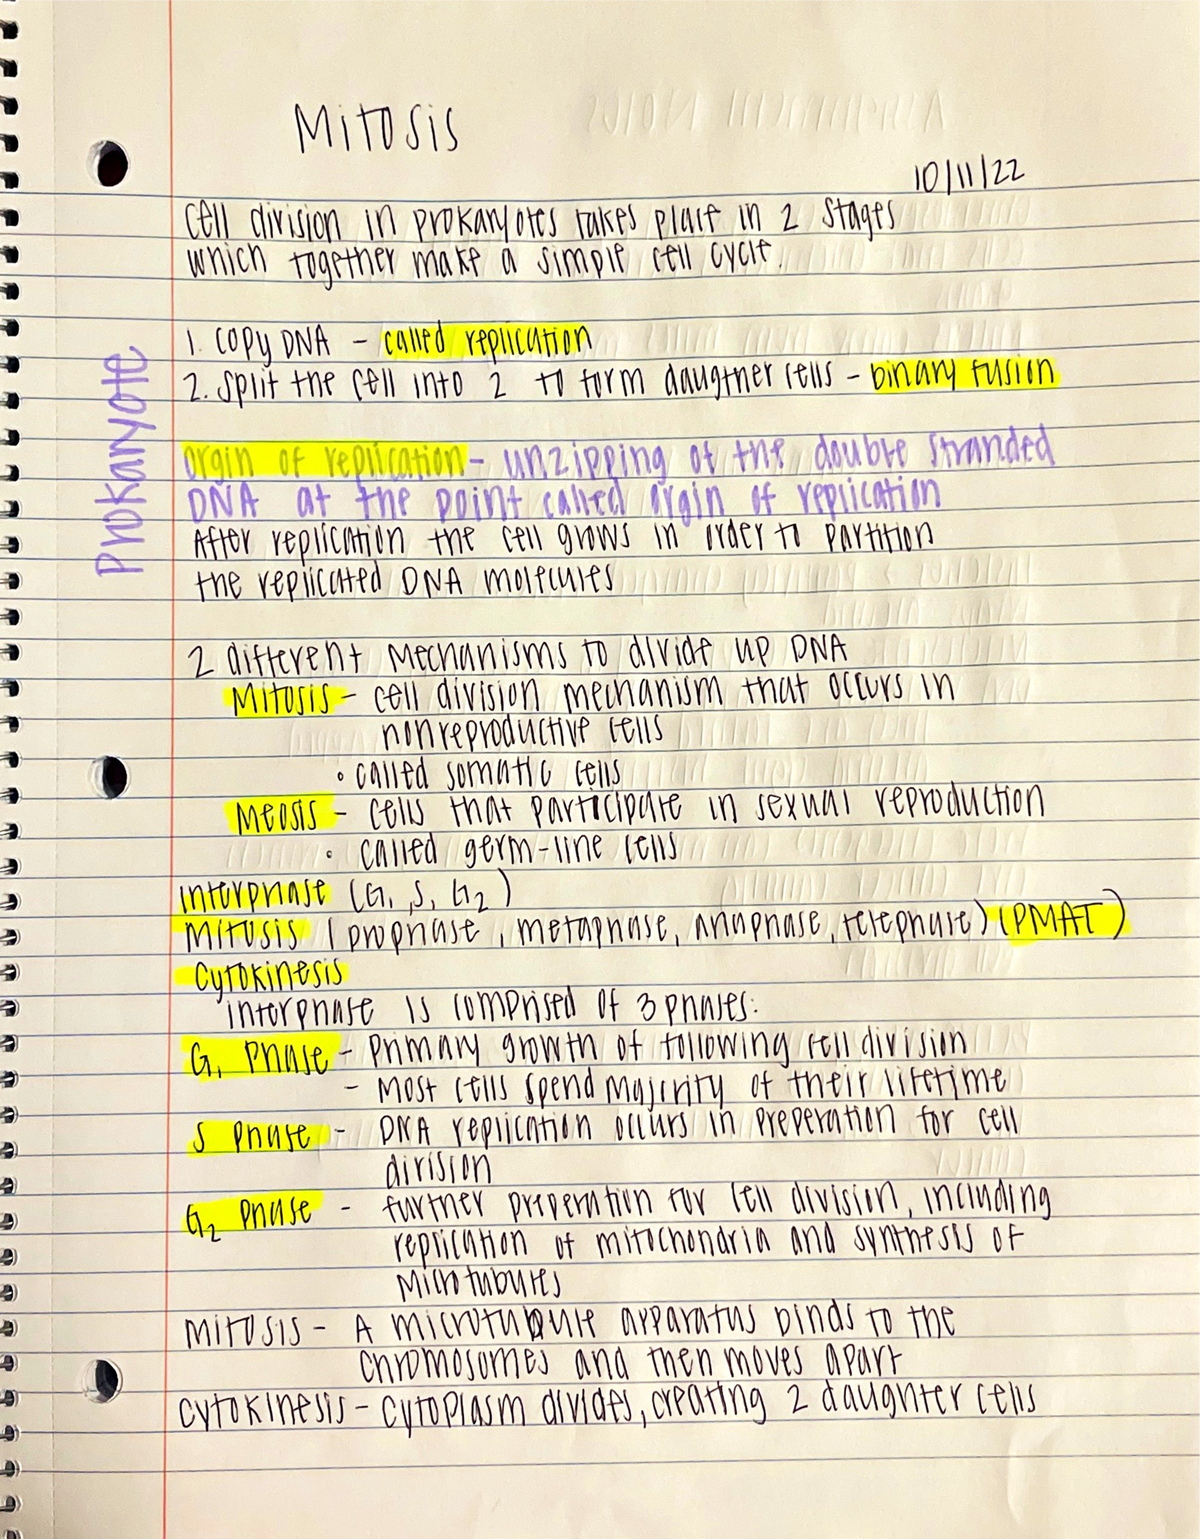 Mitosis
10/11/22
Cell division in prokaryotes takes place in 2 stages
which together make a simple cell cycle.
1. Copy DNA - called replication
2. Split the cell into 2 to form daugtner cells - binary fusion
Prokaryote
Orgin of replication - unzipping of the double stranded
DNA at the point called orgin of replication
After replication the cell grows in order to partition
the replicated DNA molecules
2 different mechanisms to divide up DNA
Mitosis - cell division mechanism that occurs in
nonreproductive cells
• called somatic cells
Meosis - cells that participate in sexual reproduction
• called germ-line cells
Interphase (G1, S, G2)
Mitosis (prophase, metaphase, anaphase, telephase) (PMAT)
Cytokinesis
Interphase is comprised of 3 phases:
G1 Phase - Primary growth of following cell division
- Most cells spend majority of their lifetime
S phase - DNA replication occurs in preperation for cell
division
G2 phase - further preperation for cell division, including
replication of mitochondria and synthesis of
microtubules
Mitosis - A microtubule apparatus binds to the
chromosomes and then moves apart
Cytokinesis - cytoplasm divides, creating 2 daughter cells